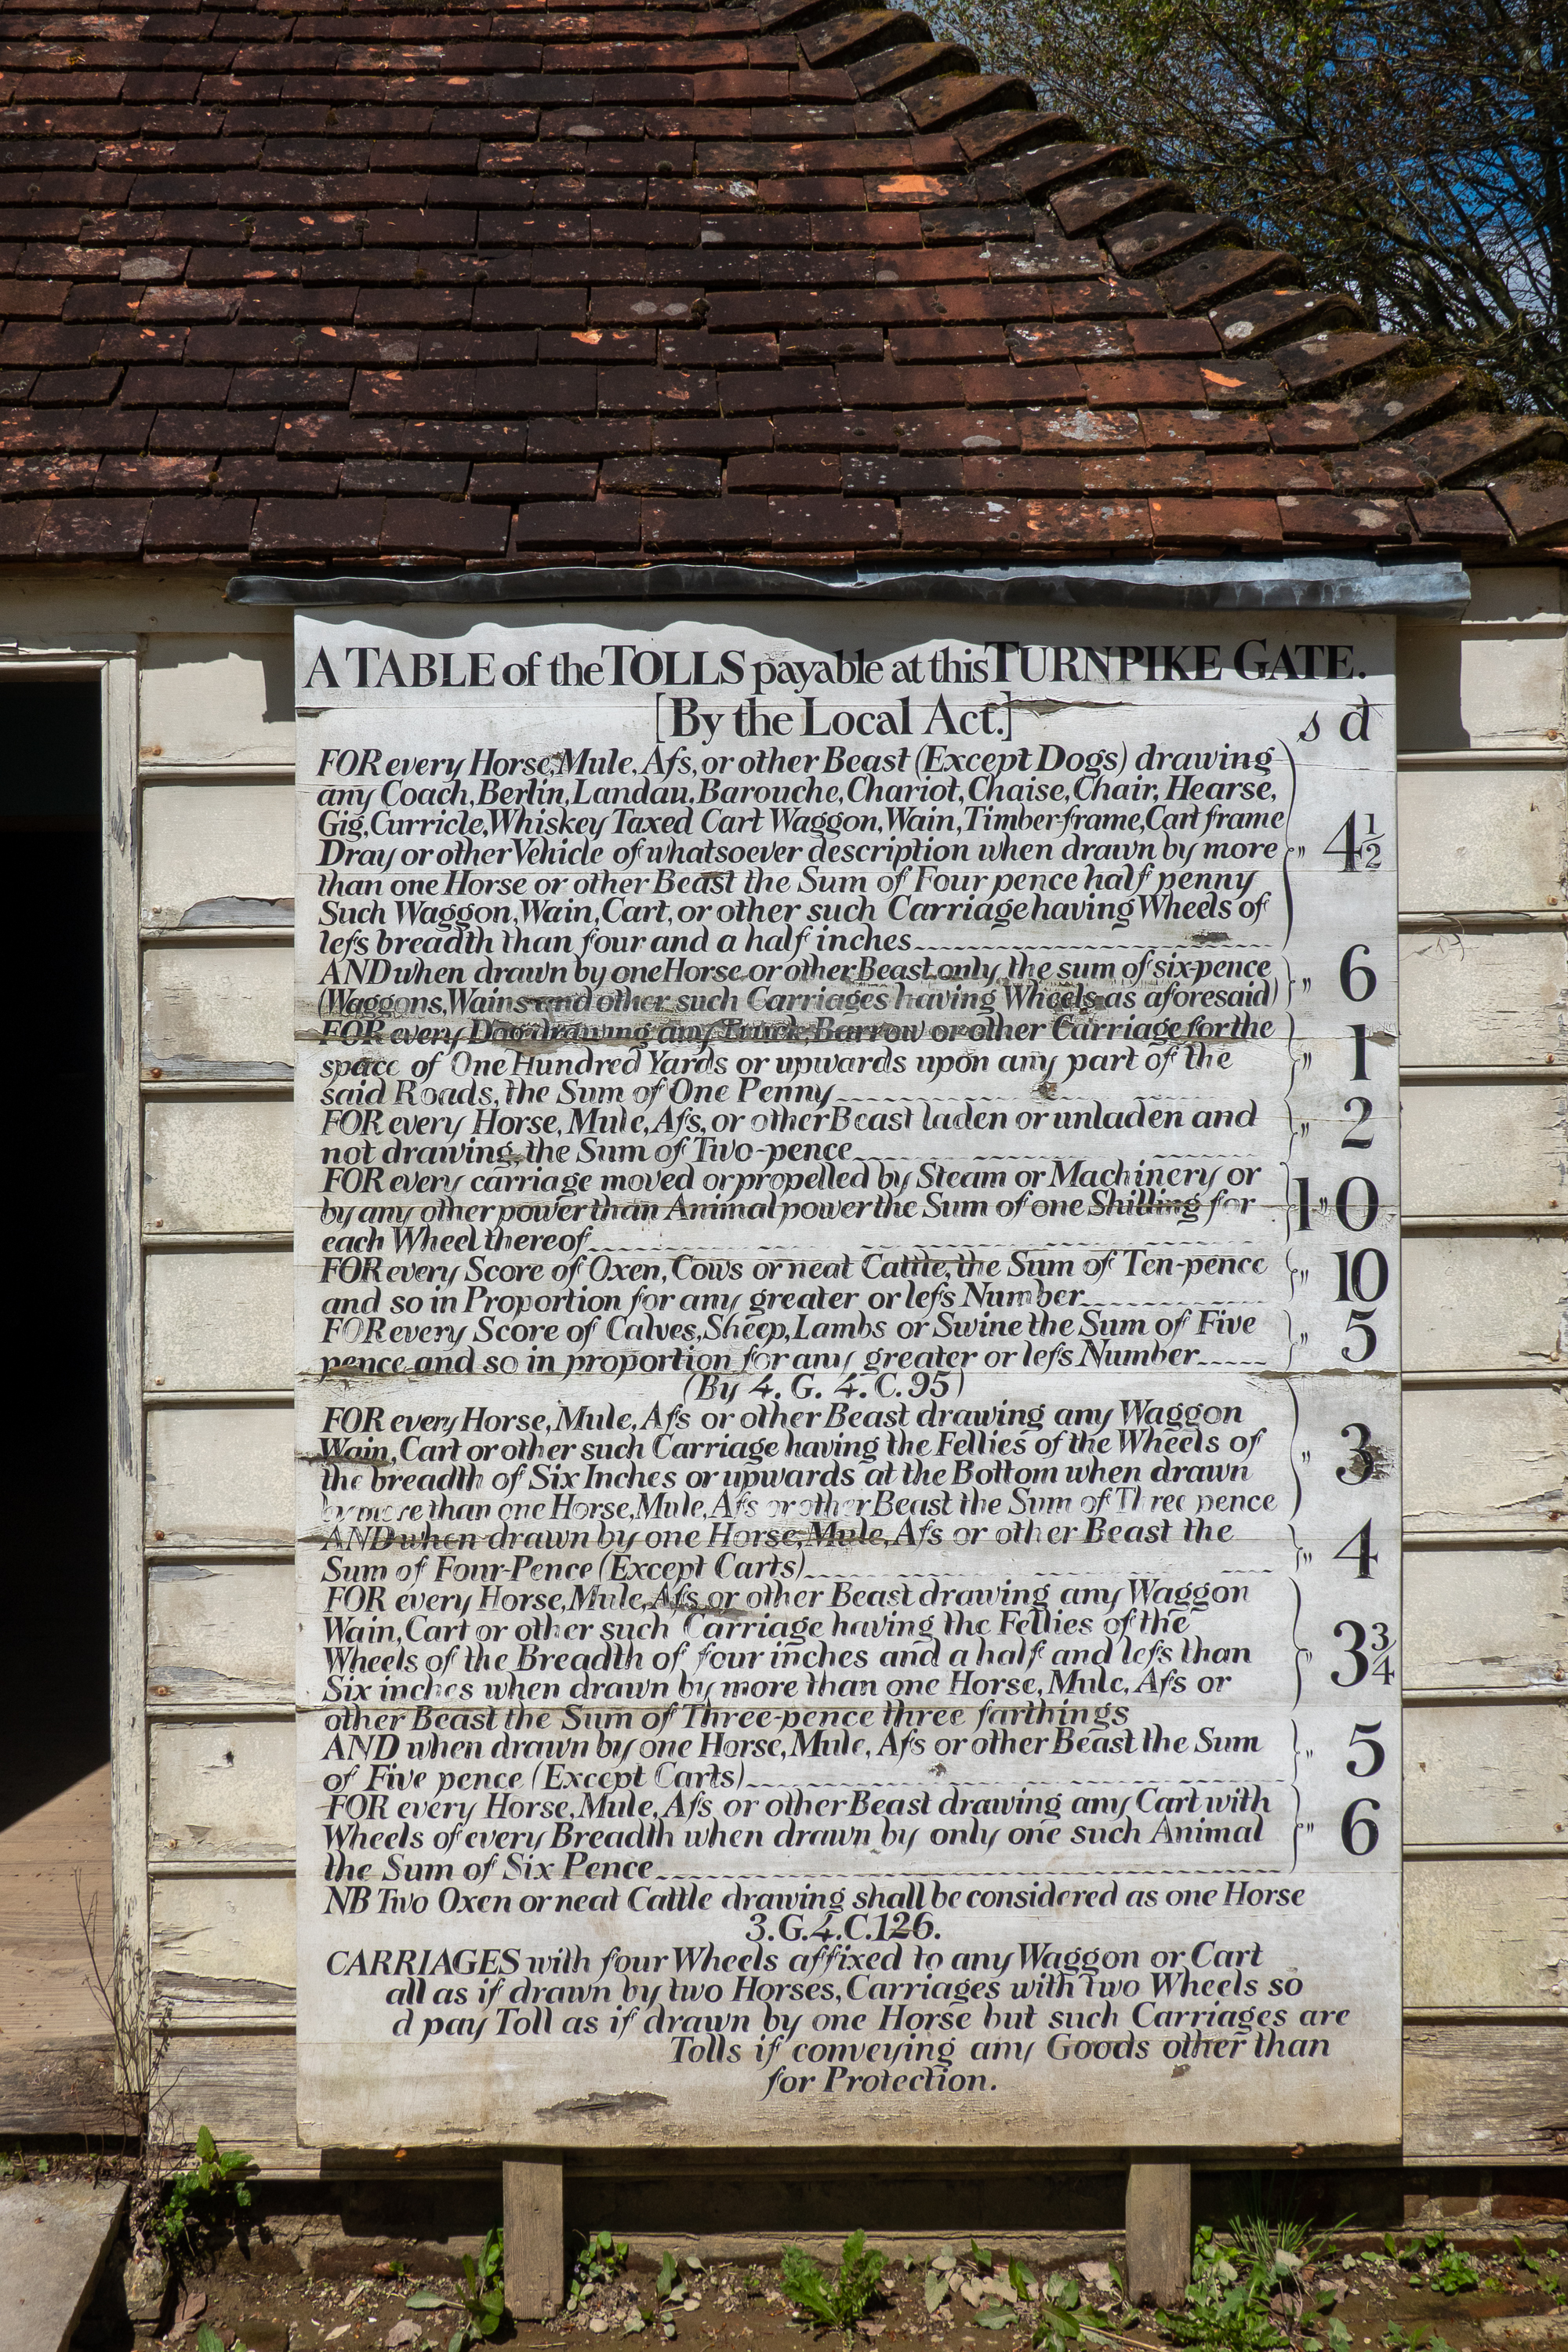 A TABLE of the TOLLS payable at this TURNPIKE GATE.
[By the Local Act.] s d
FOR every Horse, Mule, Afs, or other Beast (Except Dogs) drawing
any Coach, Berlin, Landau, Barouche, Chariot, Chaise, Chair, Hearse,
Gig, Curricle, Whiskey Taxed Cart Waggon, Wain, Timber-frame, Cart frame
Dray or other Vehicle of whatsoever description when drawn by more " 4½
than one Horse or other Beast the Sum of Four pence half penny
Such Waggon, Wain, Cart, or other such Carriage having Wheels of
lefs breadth than four and a half inches
AND when drawn by one Horse or other Beast only the sum of six-pence " 6
(Waggons, Wains and other such Carriages having Wheels as aforesaid)
FOR every Dog drawing any Truck, Barrow or other Carriage for the
space of One Hundred Yards or upwards upon any part of the " 1
said Roads, the Sum of One Penny
FOR every Horse, Mule, Afs, or other Beast laden or unladen and " 2
not drawing, the Sum of Two-pence
FOR every carriage moved or propelled by Steam or Machinery or
by any other power than Animal power the Sum of one Shilling for 1"0
each Wheel thereof
FOR every Score of Oxen, Cows or neat Cattle, the Sum of Ten-pence " 10
and so in Proportion for any greater or lefs Number
FOR every Score of Calves, Sheep, Lambs or Swine the Sum of Five " 5
pence and so in proportion for any greater or lefs Number
(By 4. G. 4. C. 95)
FOR every Horse, Mule, Afs or other Beast drawing any Waggon
Wain, Cart or other such Carriage having the Fellies of the Wheels of " 3
the breadth of Six Inches or upwards at the Bottom when drawn
by more than one Horse, Mule, Afs or other Beast the Sum of Three pence
AND when drawn by one Horse, Mule, Afs or other Beast the " 4
Sum of Four-Pence (Except Carts)
FOR every Horse, Mule, Afs or other Beast drawing any Waggon
Wain, Cart or other such Carriage having the Fellies of the
Wheels of the Breadth of four inches and a half and lefs than " 3¾
Six inches when drawn by more than one Horse, Mule, Afs or
other Beast the Sum of Three-pence three farthings
AND when drawn by one Horse, Mule, Afs or other Beast the Sum " 5
of Five pence (Except Carts)
FOR every Horse, Mule, Afs or other Beast drawing any Cart with
Wheels of every Breadth when drawn by only one such Animal " 6
the Sum of Six Pence
NB Two Oxen or neat Cattle drawing shall be considered as one Horse
3.G.4.C.126.
CARRIAGES with four Wheels affixed to any Waggon or Cart
all as if drawn by two Horses, Carriages with two Wheels so
d pay Toll as if drawn by one Horse but such Carriages are
Tolls if conveying any Goods other than
for Protection.